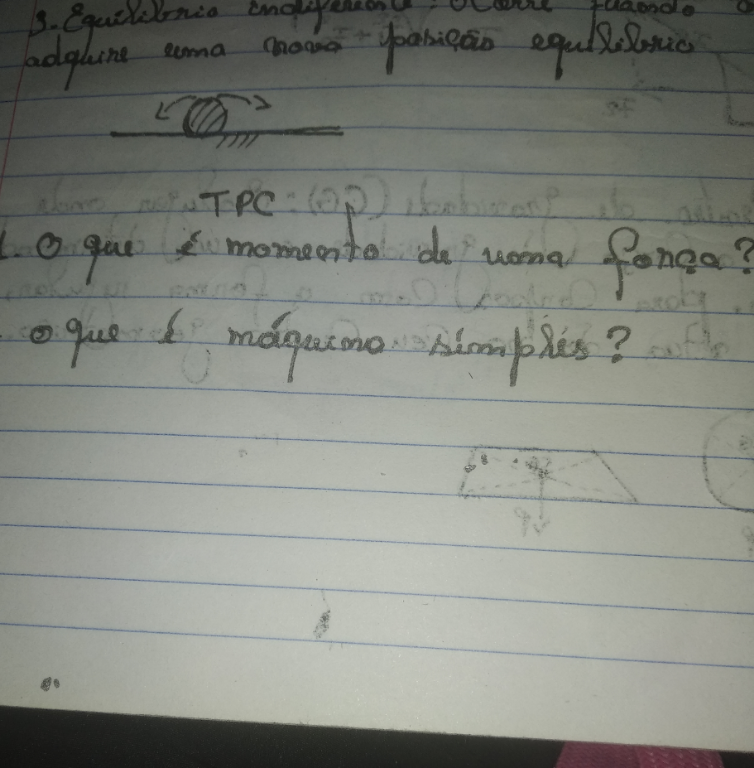 3. Equilibrio indiferente: Ocorre quando o
adquire uma nova posição equilibrio
TPC
1. O que é momento de uma força?
. O que é máquina simplis?